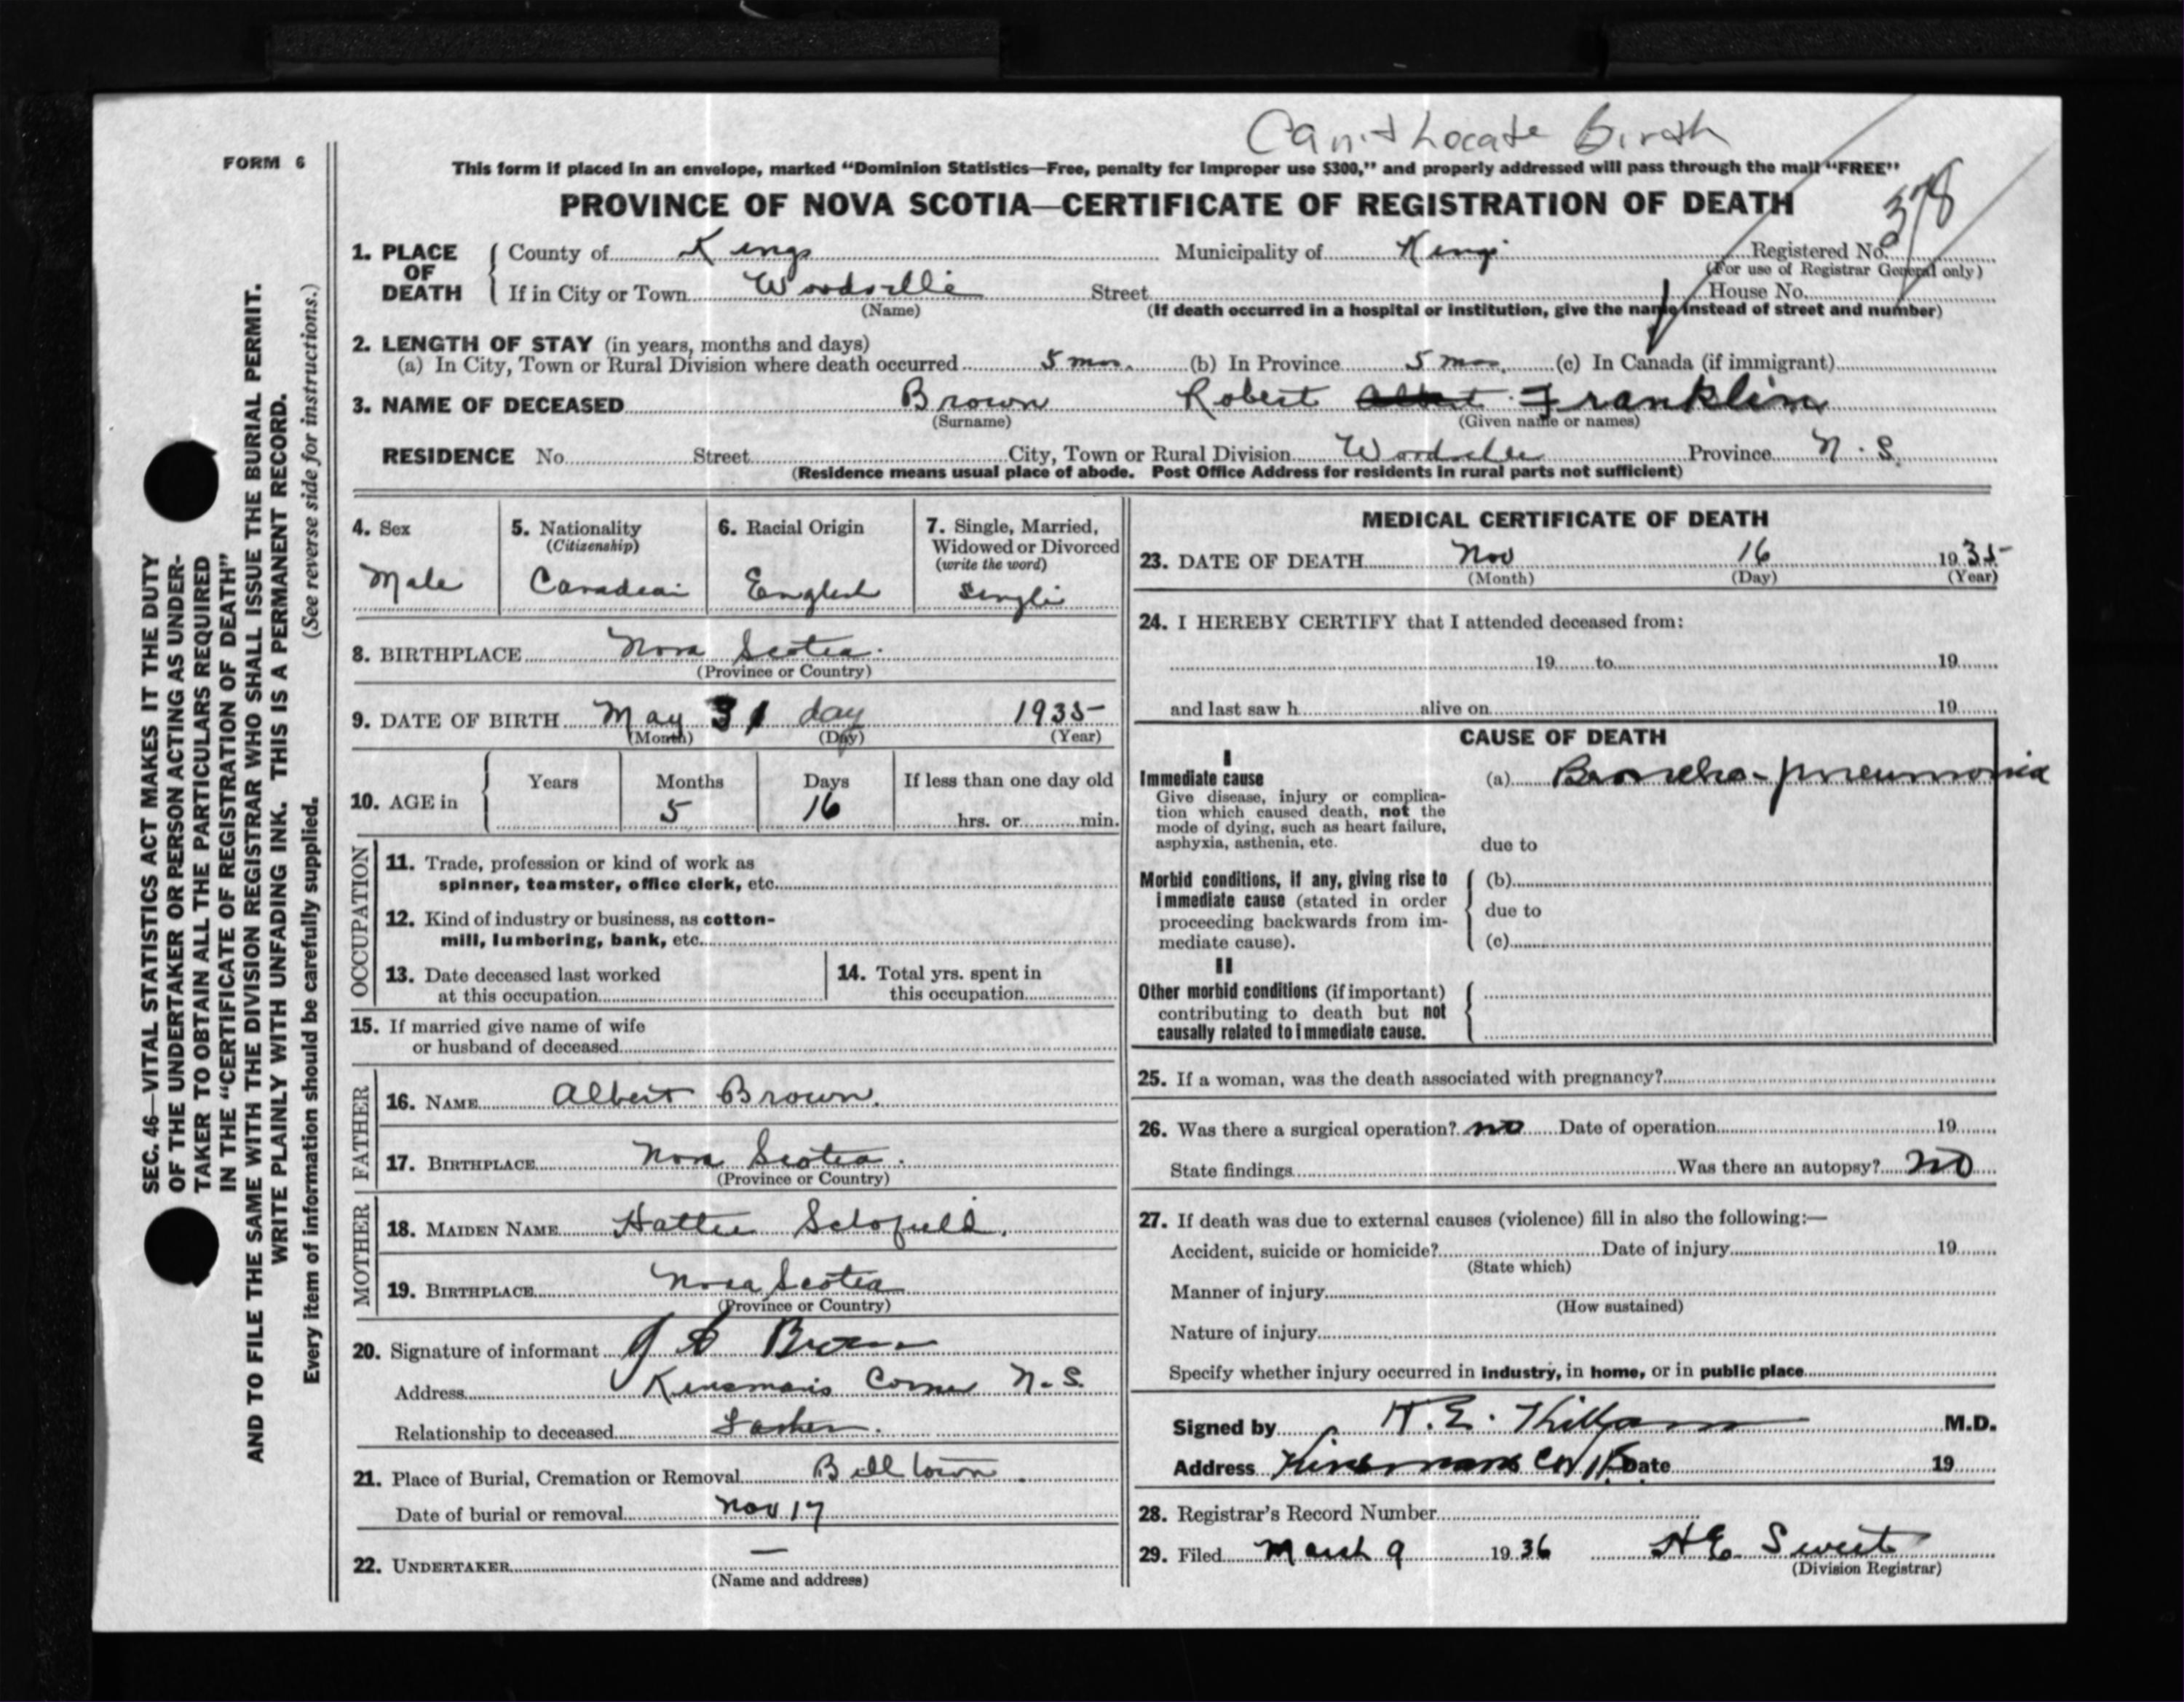 Can't Locate Birth
FORM 6
This form if placed in an envelope, marked "Dominion Statistics—Free, penalty for improper use $300," and properly addressed will pass through the mail "FREE"
PROVINCE OF NOVA SCOTIA—CERTIFICATE OF REGISTRATION OF DEATH
378
1. PLACE OF DEATH { County of Kings Municipality of Kings Registered No.
(For use of Registrar General only)
If in City or Town Woodville Street House No.
(Name) (If death occurred in a hospital or institution, give the name instead of street and number)
2. LENGTH OF STAY (in years, months and days)
(a) In City, Town or Rural Division where death occurred 5 mos. (b) In Province 5 mos. (c) In Canada (if immigrant)
3. NAME OF DECEASED Brown Robert Albert Franklin
(Surname) (Given name or names)
RESIDENCE No. Street City, Town or Rural Division Woodville Province N.S.
(Residence means usual place of abode. Post Office Address for residents in rural parts not sufficient)
4. Sex
Male
5. Nationality
(Citizenship)
Canadian
6. Racial Origin
English
7. Single, Married,
Widowed or Divorced
(write the word)
Single
8. BIRTHPLACE Nova Scotia.
(Province or Country)
9. DATE OF BIRTH May 31 day 1935
(Month) (Day) (Year)
10. AGE in { Years Months Days If less than one day old
5 16 hrs. or min.
OCCUPATION
11. Trade, profession or kind of work as
spinner, teamster, office clerk, etc.
12. Kind of industry or business, as cotton-
mill, lumbering, bank, etc.
13. Date deceased last worked
at this occupation
14. Total yrs. spent in
this occupation
15. If married give name of wife
or husband of deceased
FATHER
16. NAME Albert Brown.
17. BIRTHPLACE Nova Scotia.
(Province or Country)
MOTHER
18. MAIDEN NAME Hattie Schofield.
19. BIRTHPLACE Nova Scotia
(Province or Country)
20. Signature of informant Brown
Address Kinsman's Corner N.S.
Relationship to deceased Father.
21. Place of Burial, Cremation or Removal Billtown.
Date of burial or removal Nov 17
22. UNDERTAKER —
(Name and address)
MEDICAL CERTIFICATE OF DEATH
23. DATE OF DEATH Nov 16 1935
(Month) (Day) (Year)
24. I HEREBY CERTIFY that I attended deceased from:
19 to 19
and last saw h alive on 19
CAUSE OF DEATH
I
Immediate cause (a) Broncho-pneumonia
Give disease, injury or complica-
tion which caused death, not the
mode of dying, such as heart failure,
asphyxia, asthenia, etc. due to
Morbid conditions, if any, giving rise to (b)
immediate cause (stated in order due to
proceeding backwards from im-
mediate cause). (c)
II
Other morbid conditions (if important)
contributing to death but not
causally related to immediate cause.
25. If a woman, was the death associated with pregnancy?
26. Was there a surgical operation? no Date of operation 19
State findings Was there an autopsy? no
27. If death was due to external causes (violence) fill in also the following:—
Accident, suicide or homicide? Date of injury 19
(State which)
Manner of injury
(How sustained)
Nature of injury
Specify whether injury occurred in industry, in home, or in public place
Signed by H.E. Killam M.D.
Address Kinsmans Date 19
28. Registrar's Record Number
29. Filed March 9 1936 H E Sweet
(Division Registrar)
SEC. 46—VITAL STATISTICS ACT MAKES IT THE DUTY
OF THE UNDERTAKER OR PERSON ACTING AS UNDER-
TAKER TO OBTAIN ALL THE PARTICULARS REQUIRED
IN THE "CERTIFICATE OF REGISTRATION OF DEATH"
AND TO FILE THE SAME WITH THE DIVISION REGISTRAR WHO SHALL ISSUE THE BURIAL PERMIT.
WRITE PLAINLY WITH UNFADING INK. THIS IS A PERMANENT RECORD.
Every item of information should be carefully supplied. (See reverse side for instructions.)